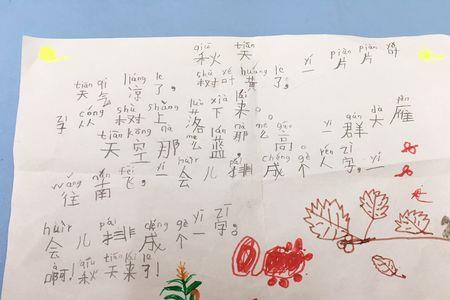 qiū tiān
秋天
tiān qì liáng le shù yè huáng le yí piàn piàn
天气凉了。树叶黄了。一片片
zǐ cóng shù shàng luò xià lái
子从树上落下来。
tiān kōng nà me nà me yì qún dà yàn
天空那么蓝那么高。一群大雁
wǎng nán fēi yí huìr pái chéng gè rén zì yí
往南飞。一会儿排成个人字。一
huìr pái chéng gè yī zì
会儿排成个一字。
a qiū tiān lái le
啊!秋天来了!